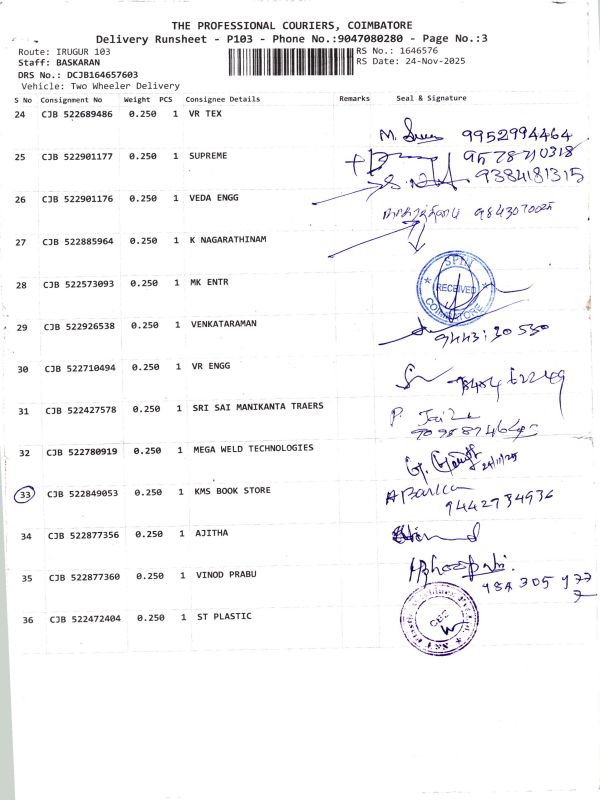 THE PROFESSIONAL COURIERS, COIMBATORE
Delivery Runsheet - P103 - Phone No.:9047080280 - Page No.:3
Route: IRUGUR 103
RS No.: 1646576
Staff: BASKARAN
RS Date: 24-Nov-2025
DRS No.: DCJB164657603
Vehicle: Two Wheeler Delivery
S No Consignment No Weight PCS Consignee Details Remarks Seal & Signature
24 CJB 522689486 0.250 1 VR TEX
9952994464
25 CJB 522901177 0.250 1 SUPREME
9384181315
26 CJB 522901176 0.250 1 VEDA ENGG
27 CJB 522885964 0.250 1 K NAGARATHINAM
28 CJB 522573093 0.250 1 MK ENTR
RECEIVED
COIMBATORE
29 CJB 522926538 0.250 1 VENKATARAMAN
9443130530
30 CJB 522710494 0.250 1 VR ENGG
31 CJB 522427578 0.250 1 SRI SAI MANIKANTA TRAERS
32 CJB 522780919 0.250 1 MEGA WELD TECHNOLOGIES
24/11/25
33 CJB 522849053 0.250 1 KMS BOOK STORE
9442734936
34 CJB 522877356 0.250 1 AJITHA
35 CJB 522877360 0.250 1 VINOD PRABU
36 CJB 522472404 0.250 1 ST PLASTIC
CBE